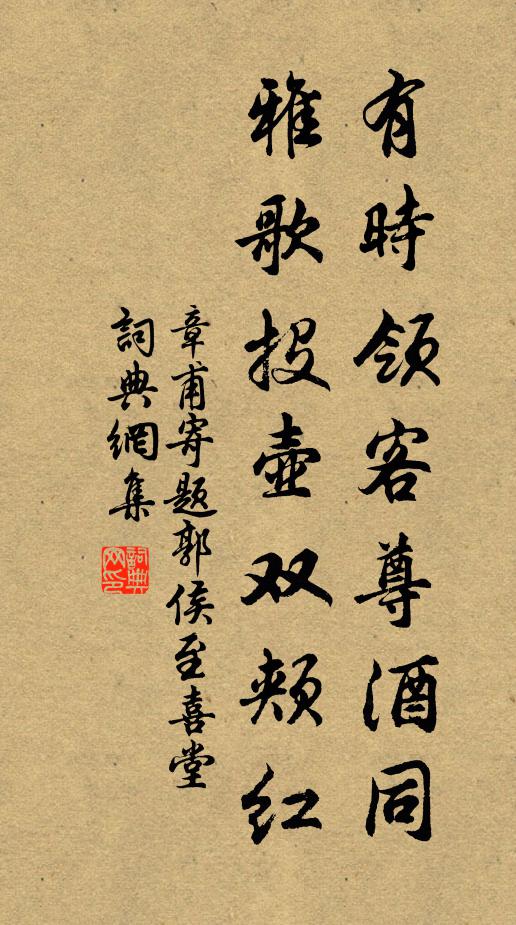 有時領客尊酒同
雅歌投壺双頰红
章甫寄题郭侯至喜堂
詞典網集
詞典网印